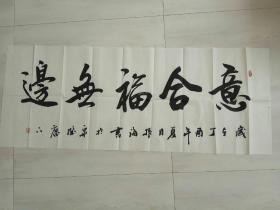 意合福無邊
歲在丁酉年夏日張海書於京城